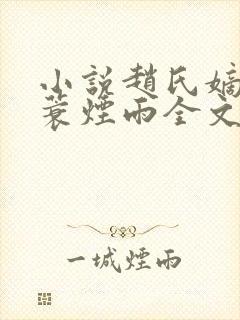 小說趙氏嫡
蓑煙雨全文
一城煙雨